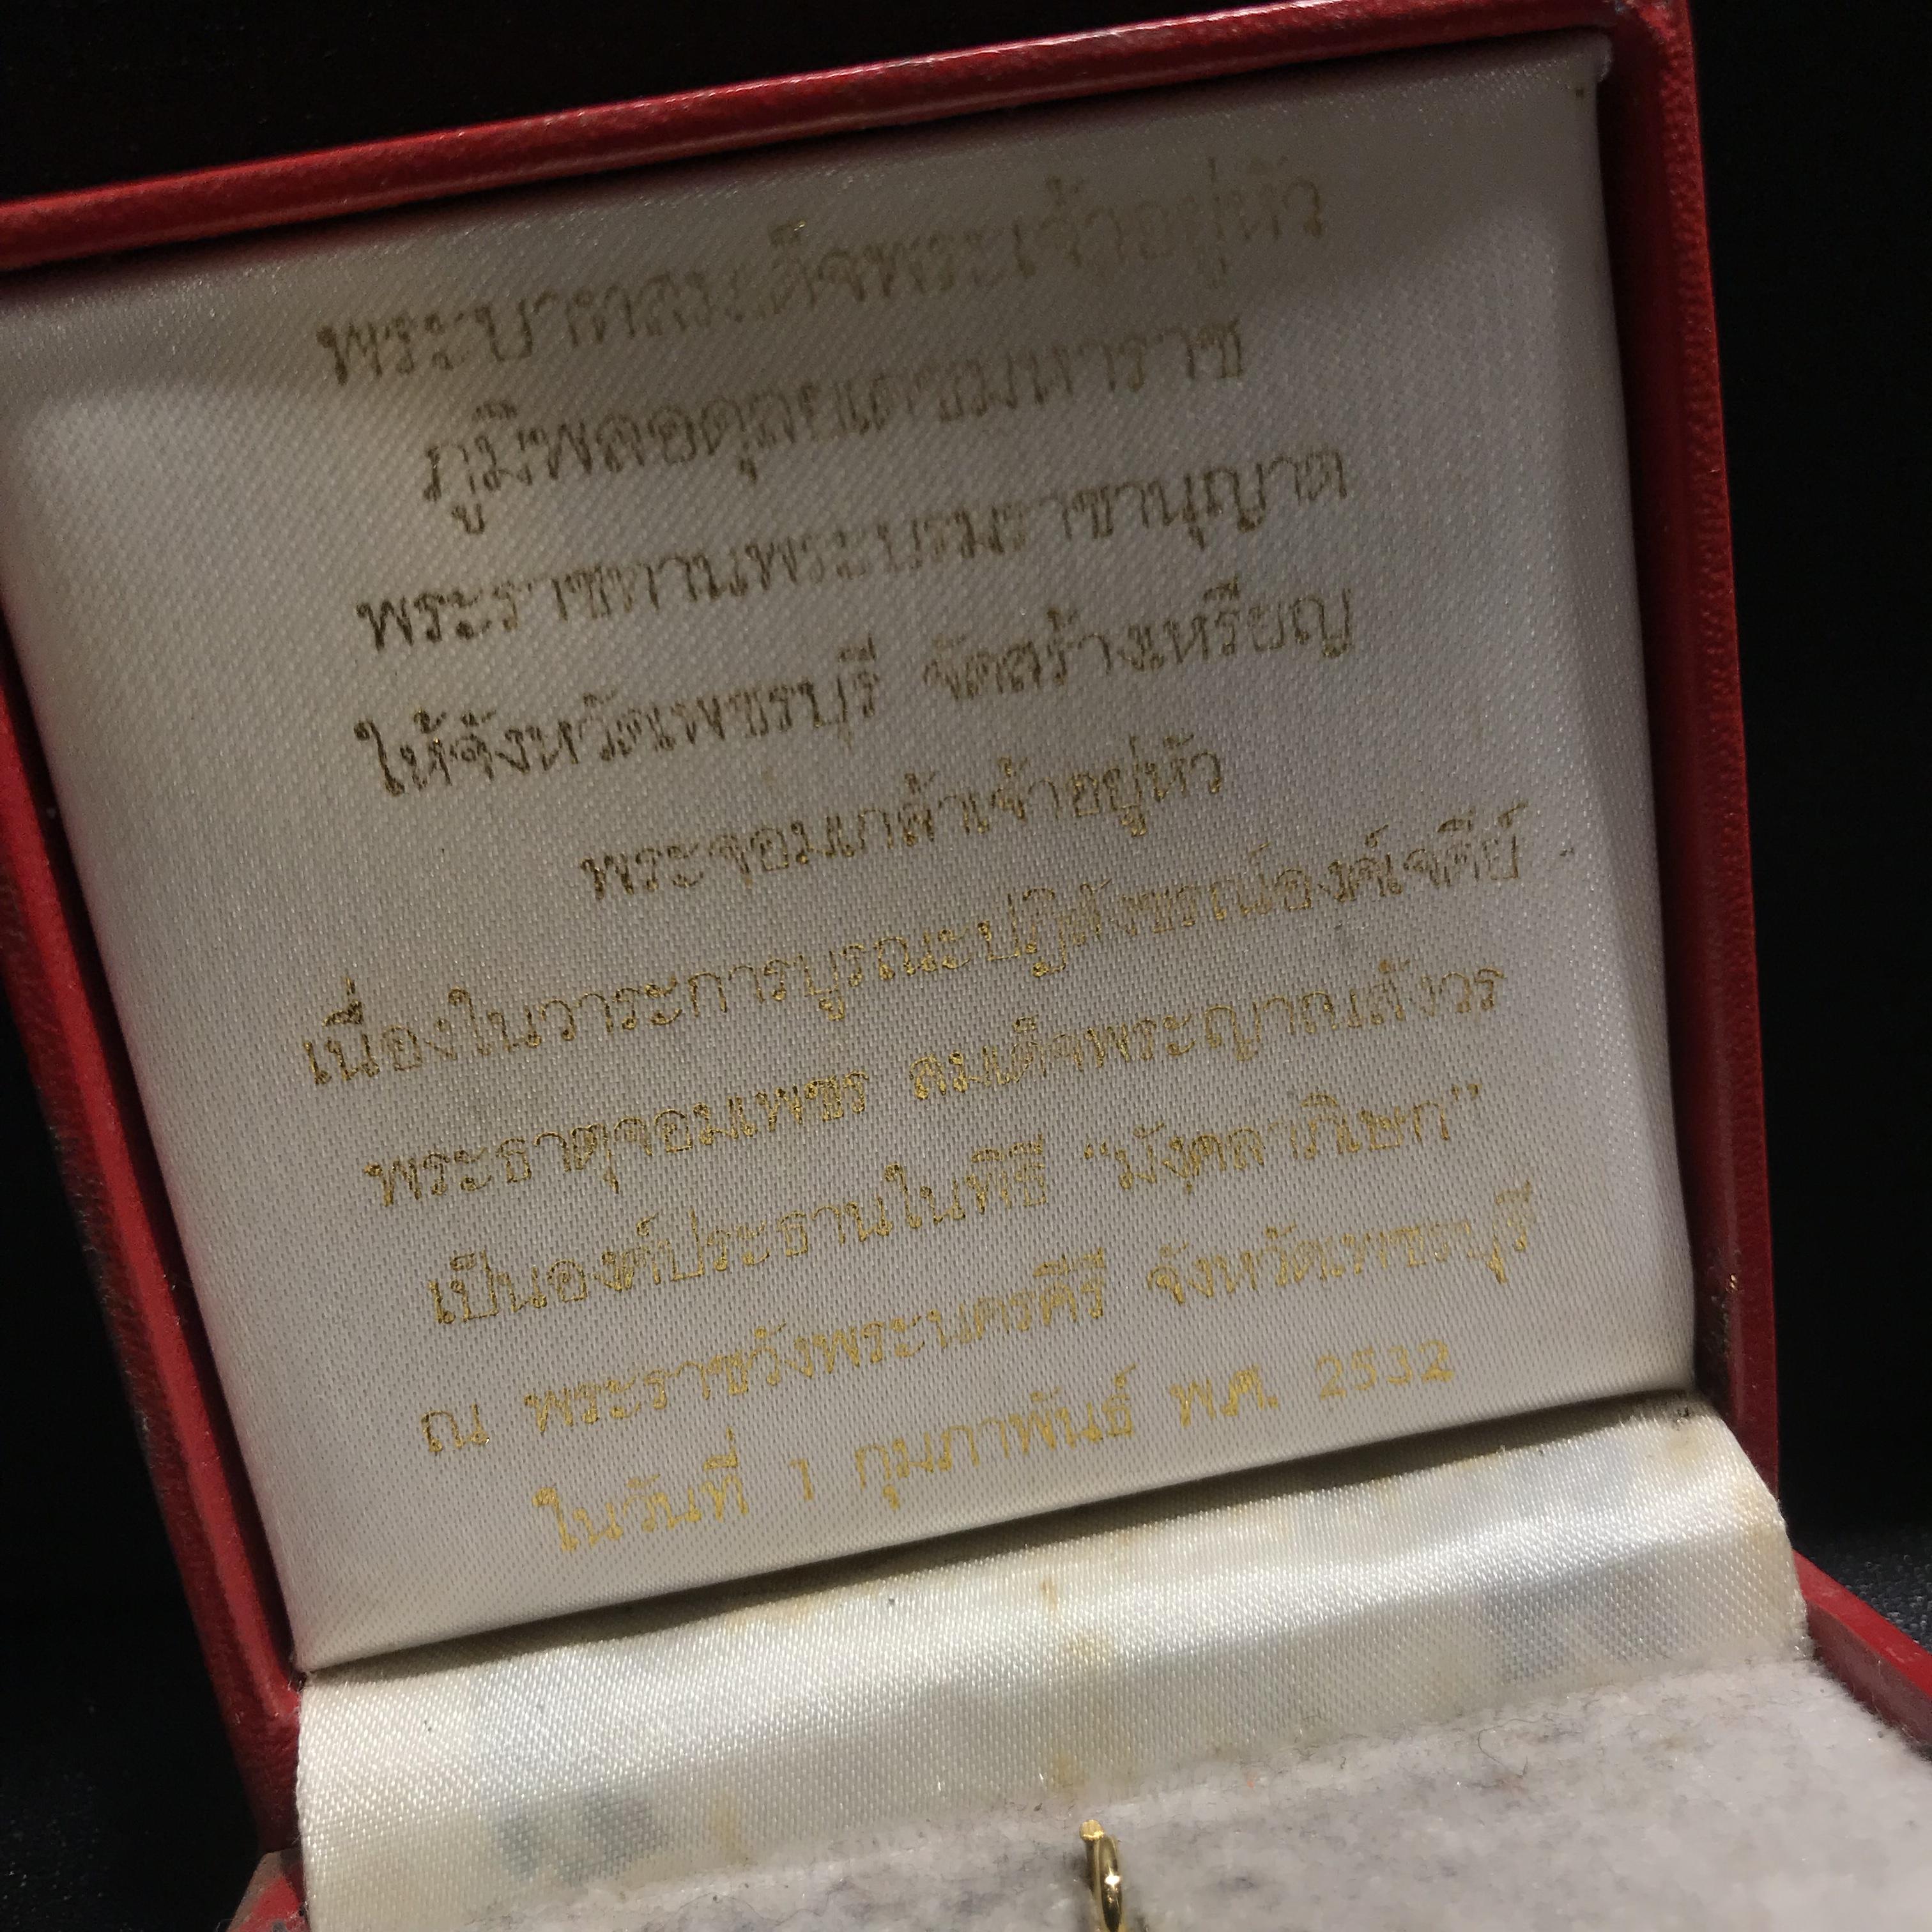 พระบาทสมเด็จพระเจ้าอยู่หัว
ภูมิพลอดุลยเดชมหาราช
พระราชทานพระบรมราชานุญาต
ให้จังหวัดเพชรบุรี จัดสร้างเหรียญ
พระจอมเกล้าเจ้าอยู่หัว
เนื่องในวาระการบูรณะปฏิสังขรณ์องค์เจดีย์
พระธาตุจอมเพชร สมเด็จพระญาณสังวร
เป็นองค์ประธานในพิธี “มังคลาภิเษก”
ณ พระราชวังพระนครคีรี จังหวัดเพชรบุรี
ในวันที่ 1 กุมภาพันธ์ พ.ศ. 2532